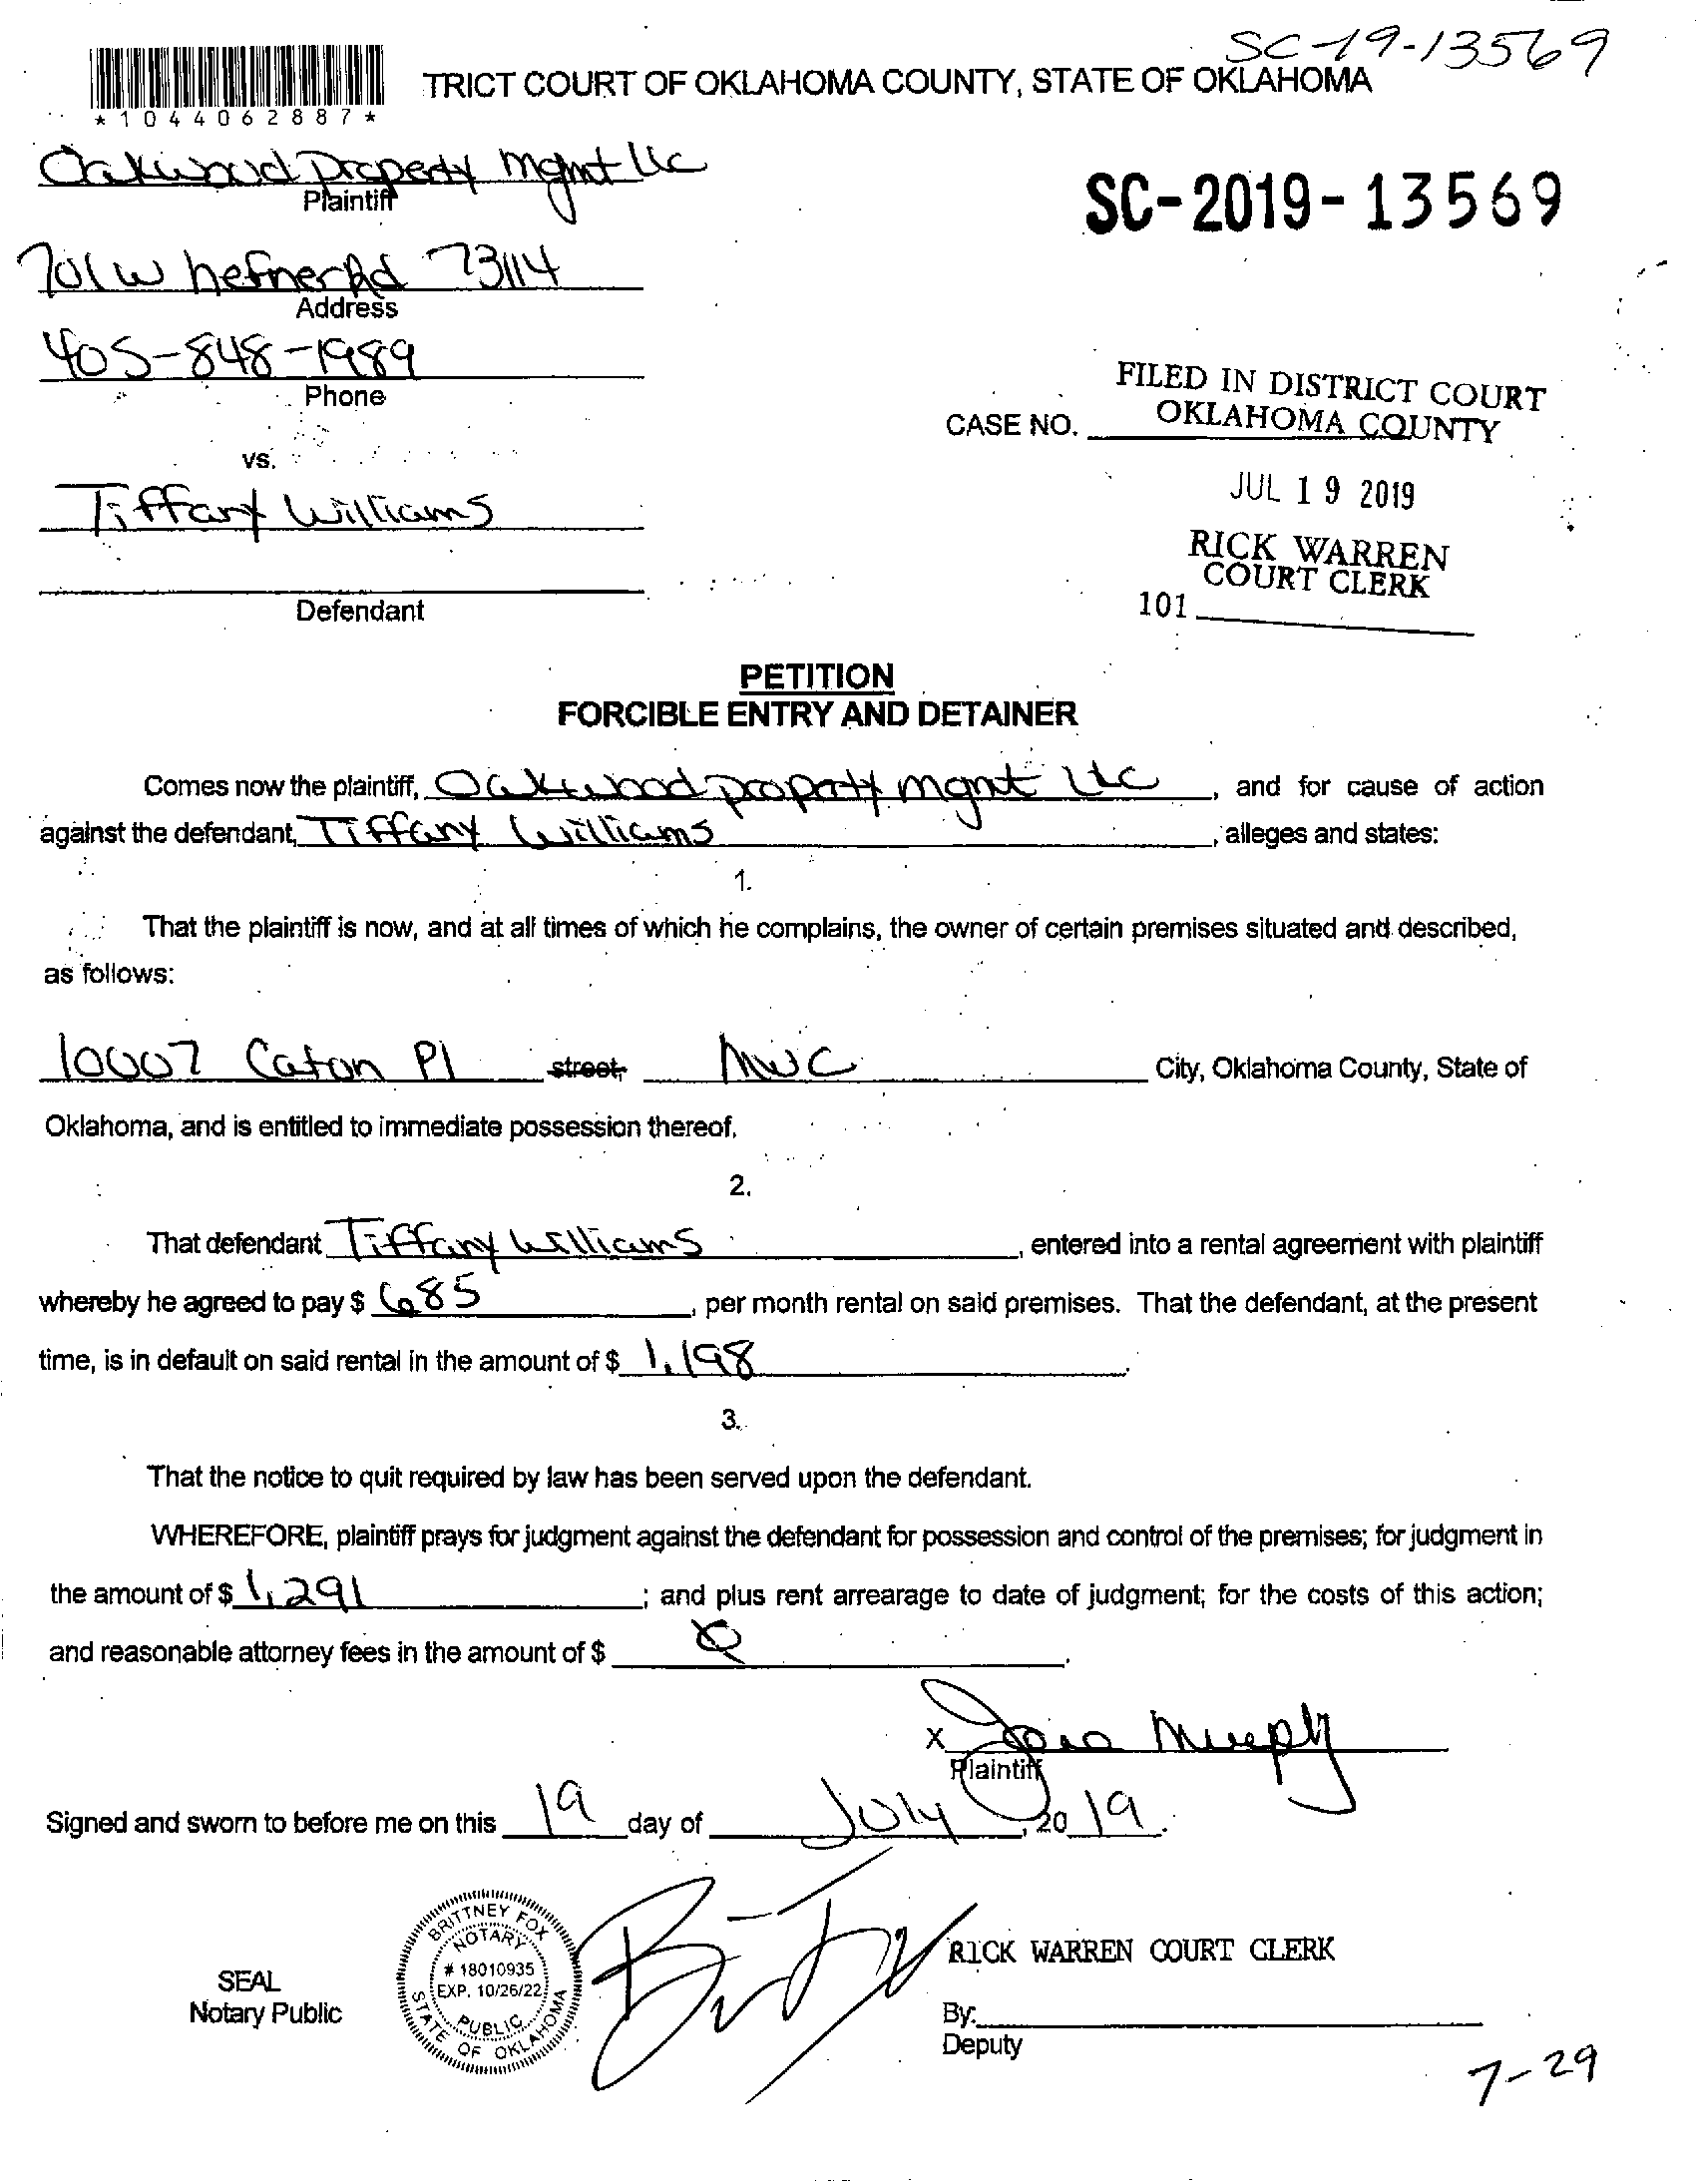 SC-19-13569
TRICT COURT OF OKLAHOMA COUNTY, STATE OF OKLAHOMA
*1044062887*
Oakwood Property Mgmt llc
Plaintiff
SC-2019-13569
701 W hefner Rd 73114
Address
405-848-1989
Phone
FILED IN DISTRICT COURT
OKLAHOMA COUNTY
CASE NO.
vs.
JUL 19 2019
Tiffany Williams
RICK WARREN
COURT CLERK
101
Defendant
PETITION
FORCIBLE ENTRY AND DETAINER
Comes now the plaintiff, Oakwood property mgmt LLC, and for cause of action
against the defendant, Tiffany Williams, alleges and states:
1.
That the plaintiff is now, and at all times of which he complains, the owner of certain premises situated and described,
as follows:
10007 Caton Pl street, MWC City, Oklahoma County, State of
Oklahoma, and is entitled to immediate possession thereof.
2.
That defendant Tiffany Williams, entered into a rental agreement with plaintiff
whereby he agreed to pay $ 685, per month rental on said premises. That the defendant, at the present
time, is in default on said rental in the amount of $ 1,198.
3.
That the notice to quit required by law has been served upon the defendant.
WHEREFORE, plaintiff prays for judgment against the defendant for possession and control of the premises; for judgment in
the amount of $ 1,291; and plus rent arrearage to date of judgment; for the costs of this action;
and reasonable attorney fees in the amount of $
X Murphy
Plaintiff
Signed and sworn to before me on this 19 day of July, 20 19.
BRITTNEY FOX
NOTARY
# 18010935
EXP. 10/26/22
PUBLIC
STATE OF OKLAHOMA
SEAL
Notary Public
RICK WARREN COURT CLERK
By:
Deputy
7-29